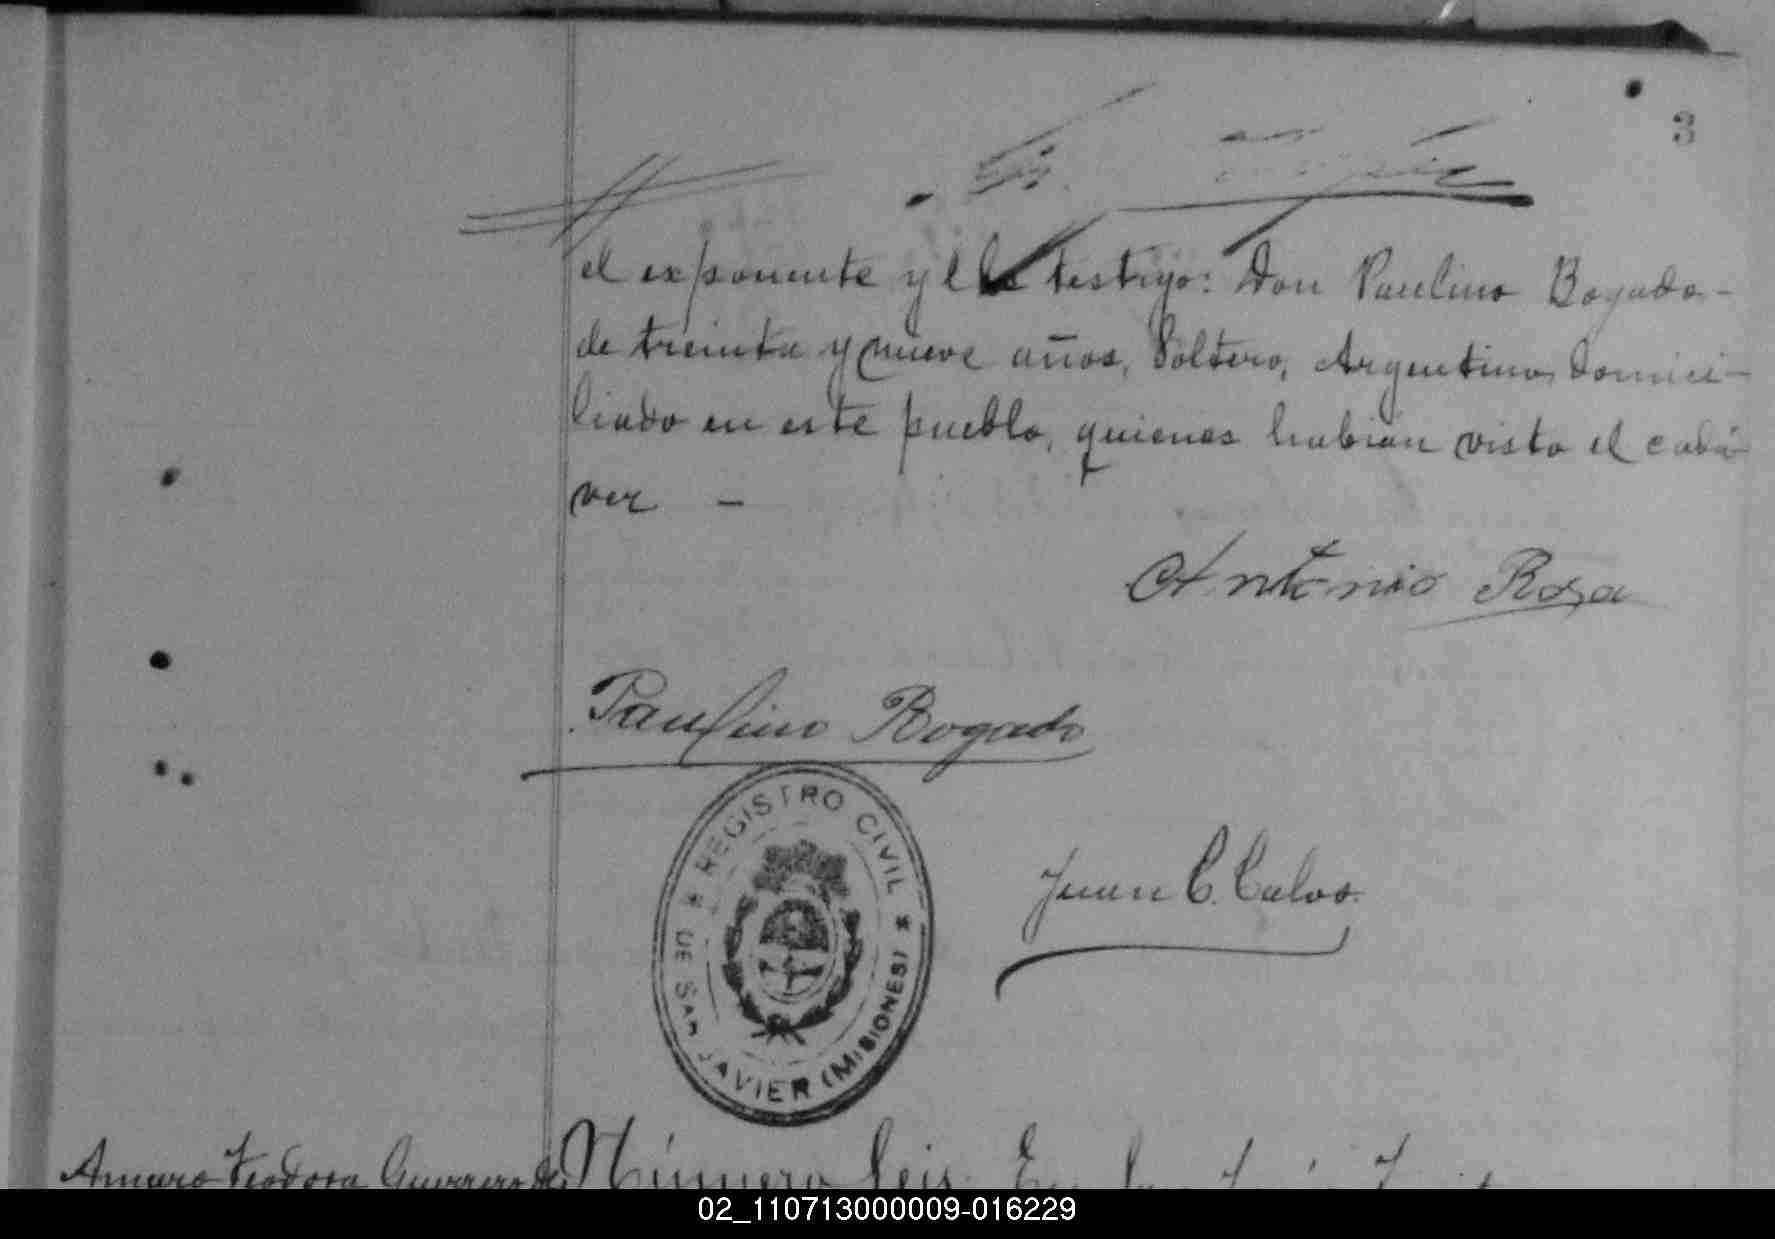 3
el exponente y el testigo: Don Paulino Bogado-
de treinta y nueve años, Soltero, Argentino, domici-
liado en este pueblo, quienes habian visto el cadá-
ver –
Antonio Roza
Paulino Bogado
REGISTRO CIVIL
DE SAN JAVIER (MISIONES)
Juan C. Calvo.
Amaro Teodora Guerrero de
Número Seis. En
02_110713000009-016229